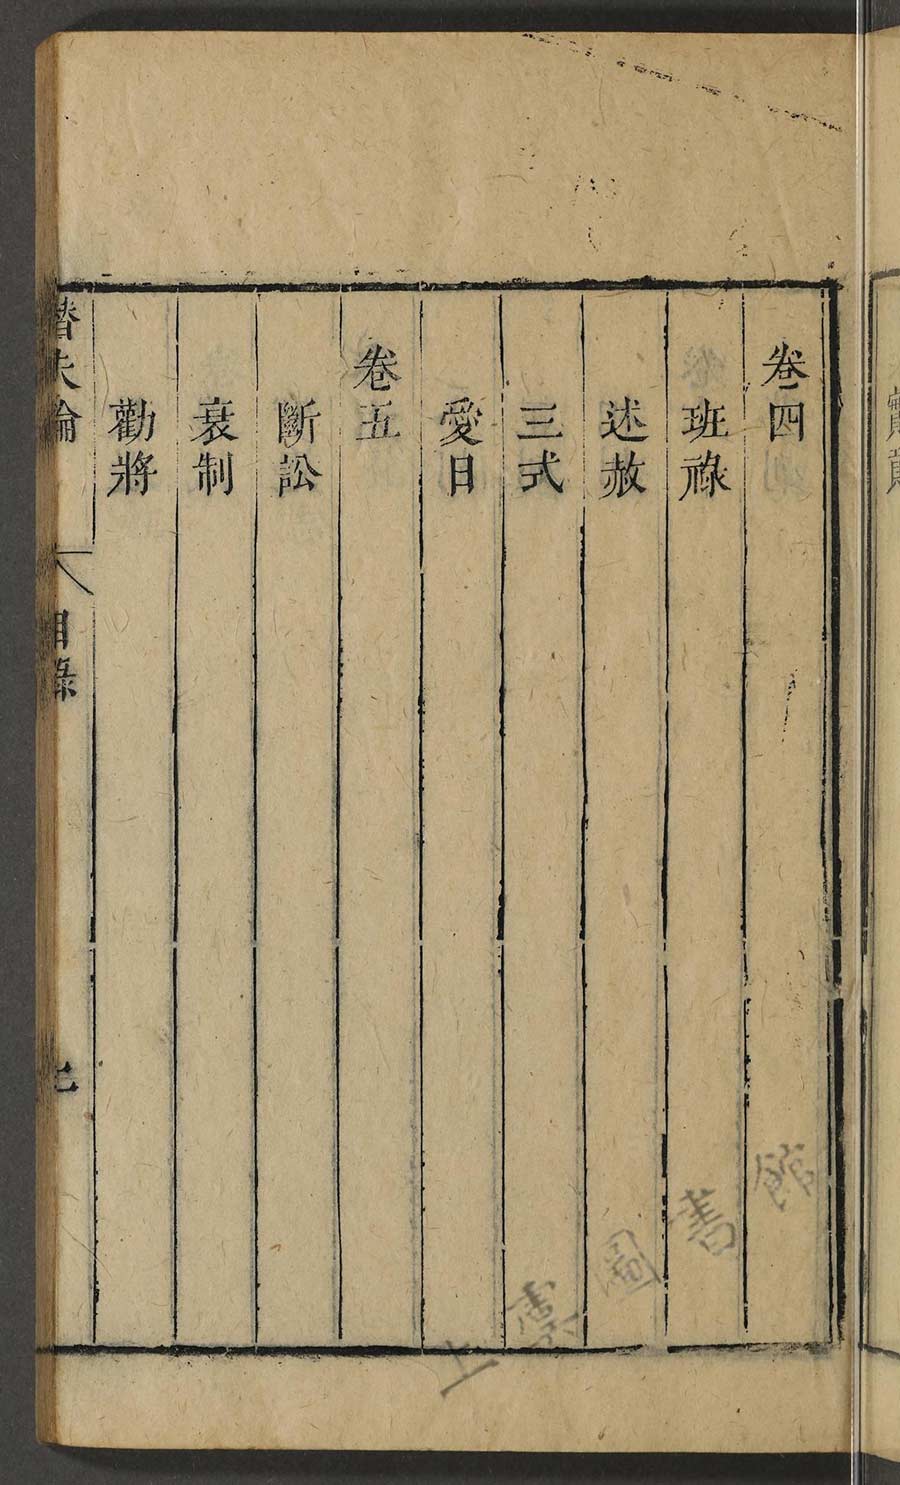 卷四
班祿
述赦
三式
愛日
卷五
斷訟
衰制
勸將
潛夫論
目錄
上虞圖書館